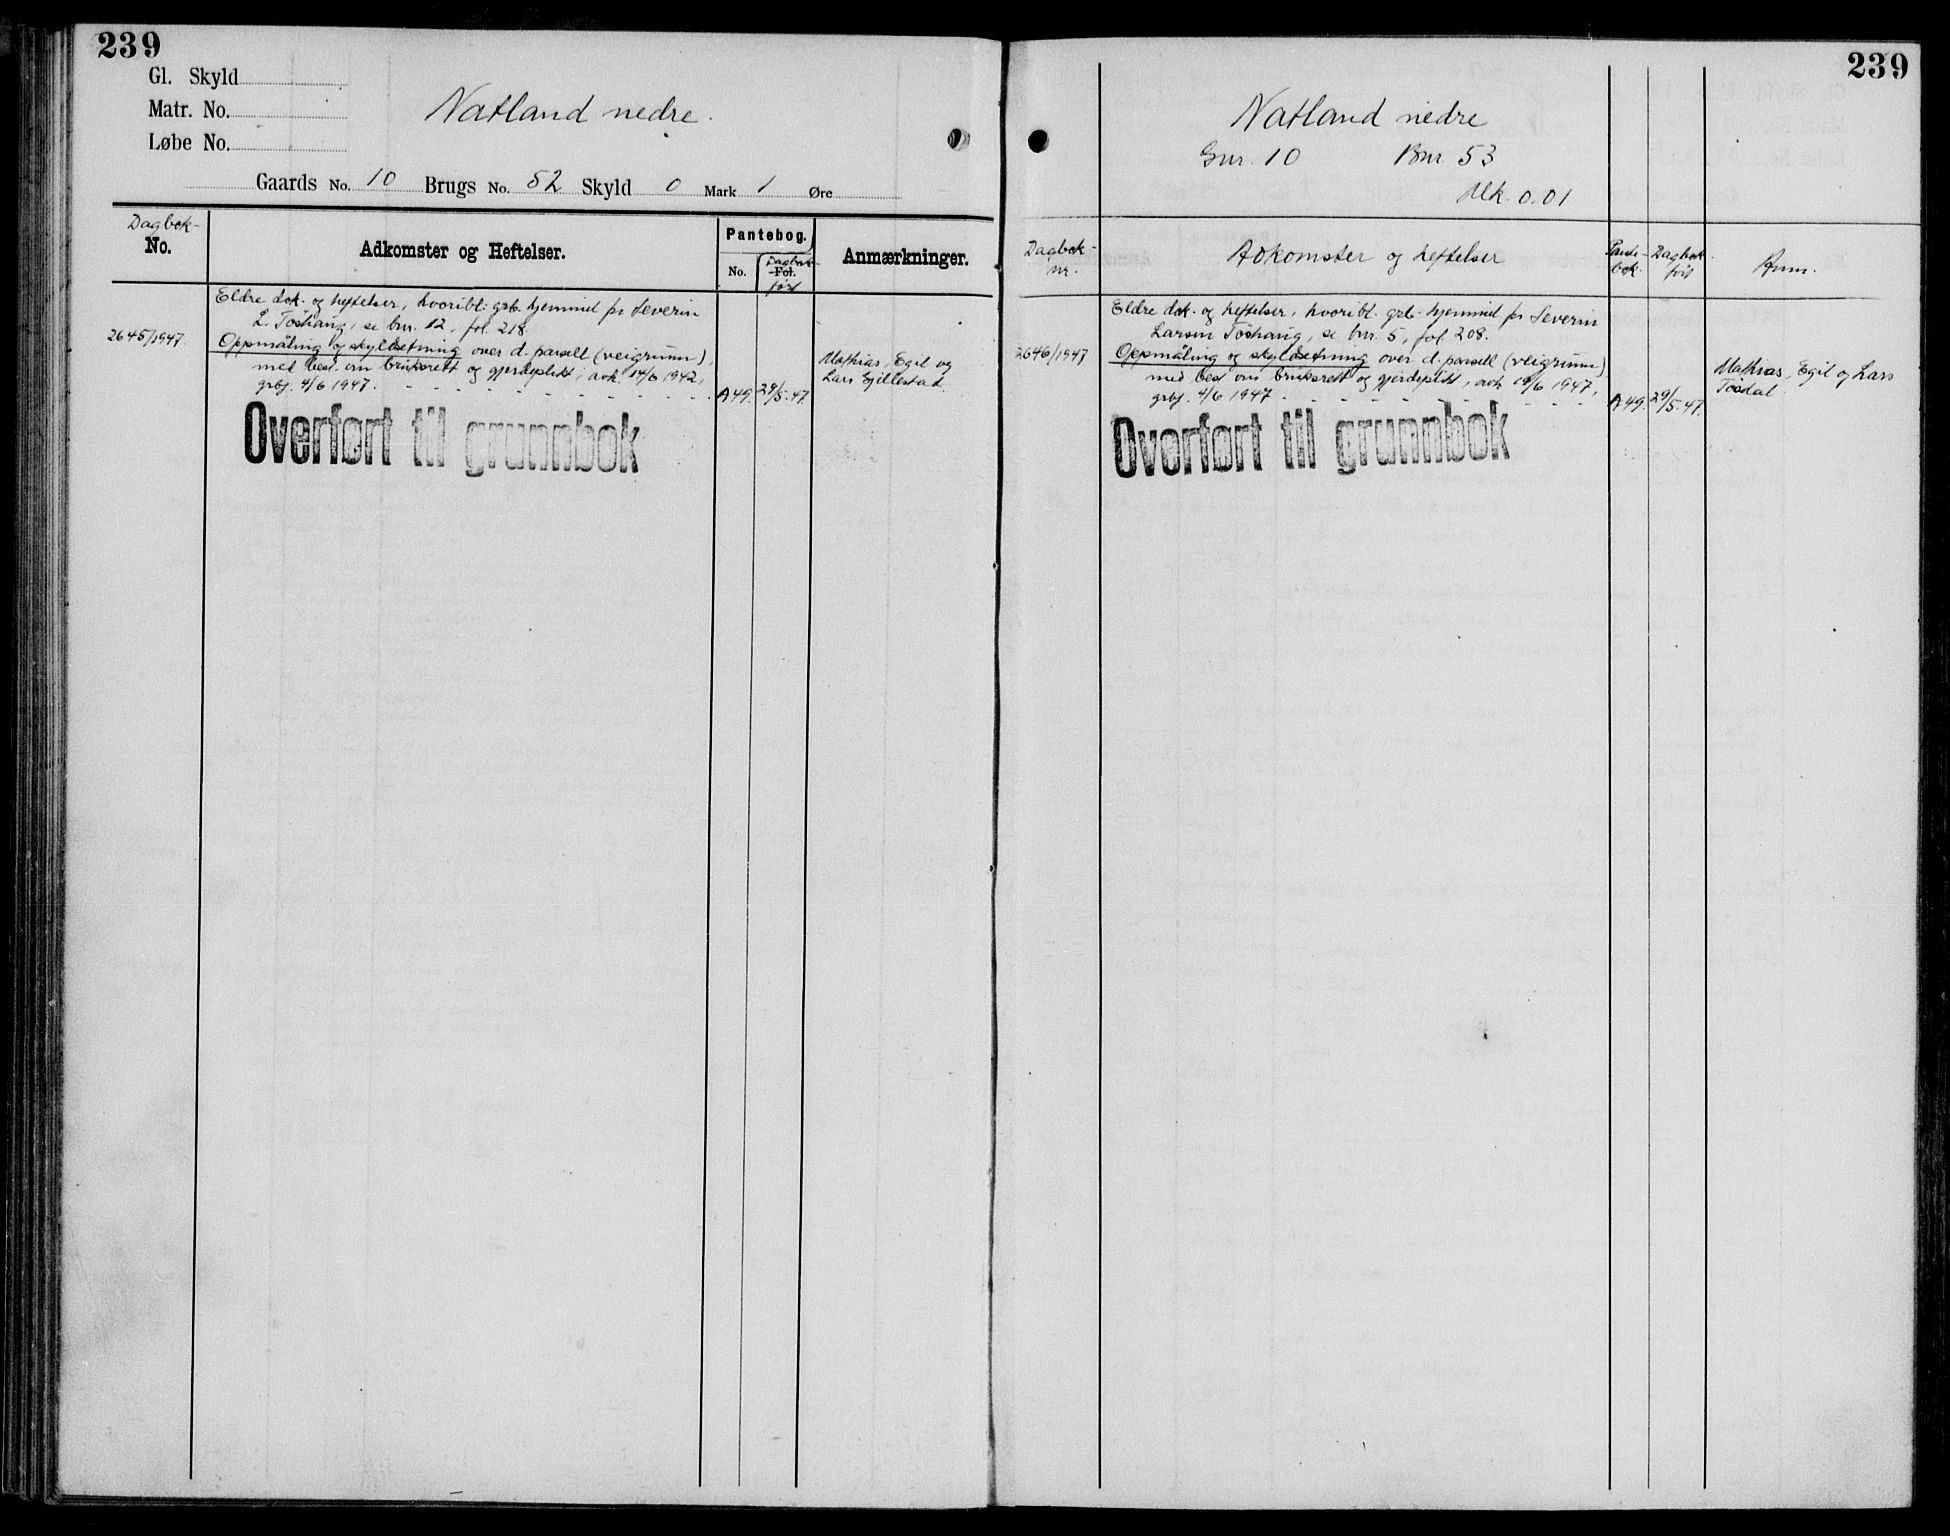 239
Gl. Skyld
Matr. No.
Løbe No.
Natland nedre.
Gaards No. 10 Brugs No. 52 Skyld 0 Mark 1 Øre
Dagbok-
No.
Adkomster og Heftelser.
Pantebog.
No.
Dagbok-
Fol.
ført
Anmærkninger.
Eldre dok. og heftelser, hvoribl. grb. hjemmel for Severin
L. Töshaug, se bnr. 12, fol. 218.
2645/1947.
Oppmåling og skyldsetning over d. parsell (veigrunn),
med best. om bruksrett og gjerdeplikt, avh. 14/6 1942,
grbj. 4/6 1947.
A49. 29/5.47.
Mathias, Egil og
Lars Gillestad.
Overført til grunnbok
239
Natland nedre
Gnr. 10 Bnr 53
Mk. 0.01
Dagbok-
nr.
Adkomster og heftelser
Pante-
bok.
Dagbok
ført
Anm.
Eldre dok. og heftelser, hvoribl. grb. hjemmel for Severin
Larsen Töshaug, se bnr. 5, fol. 208.
2646/1947
Oppmåling og skyldsetning over d. parsell (veigrunn)
med best om bruksrett og gjerdeplikt, avh. /6 1947,
grbj. 4/6 1947.
A49. 29/5.47.
Mathias, Egil og Lars
Tösdal.
Overført til grunnbok